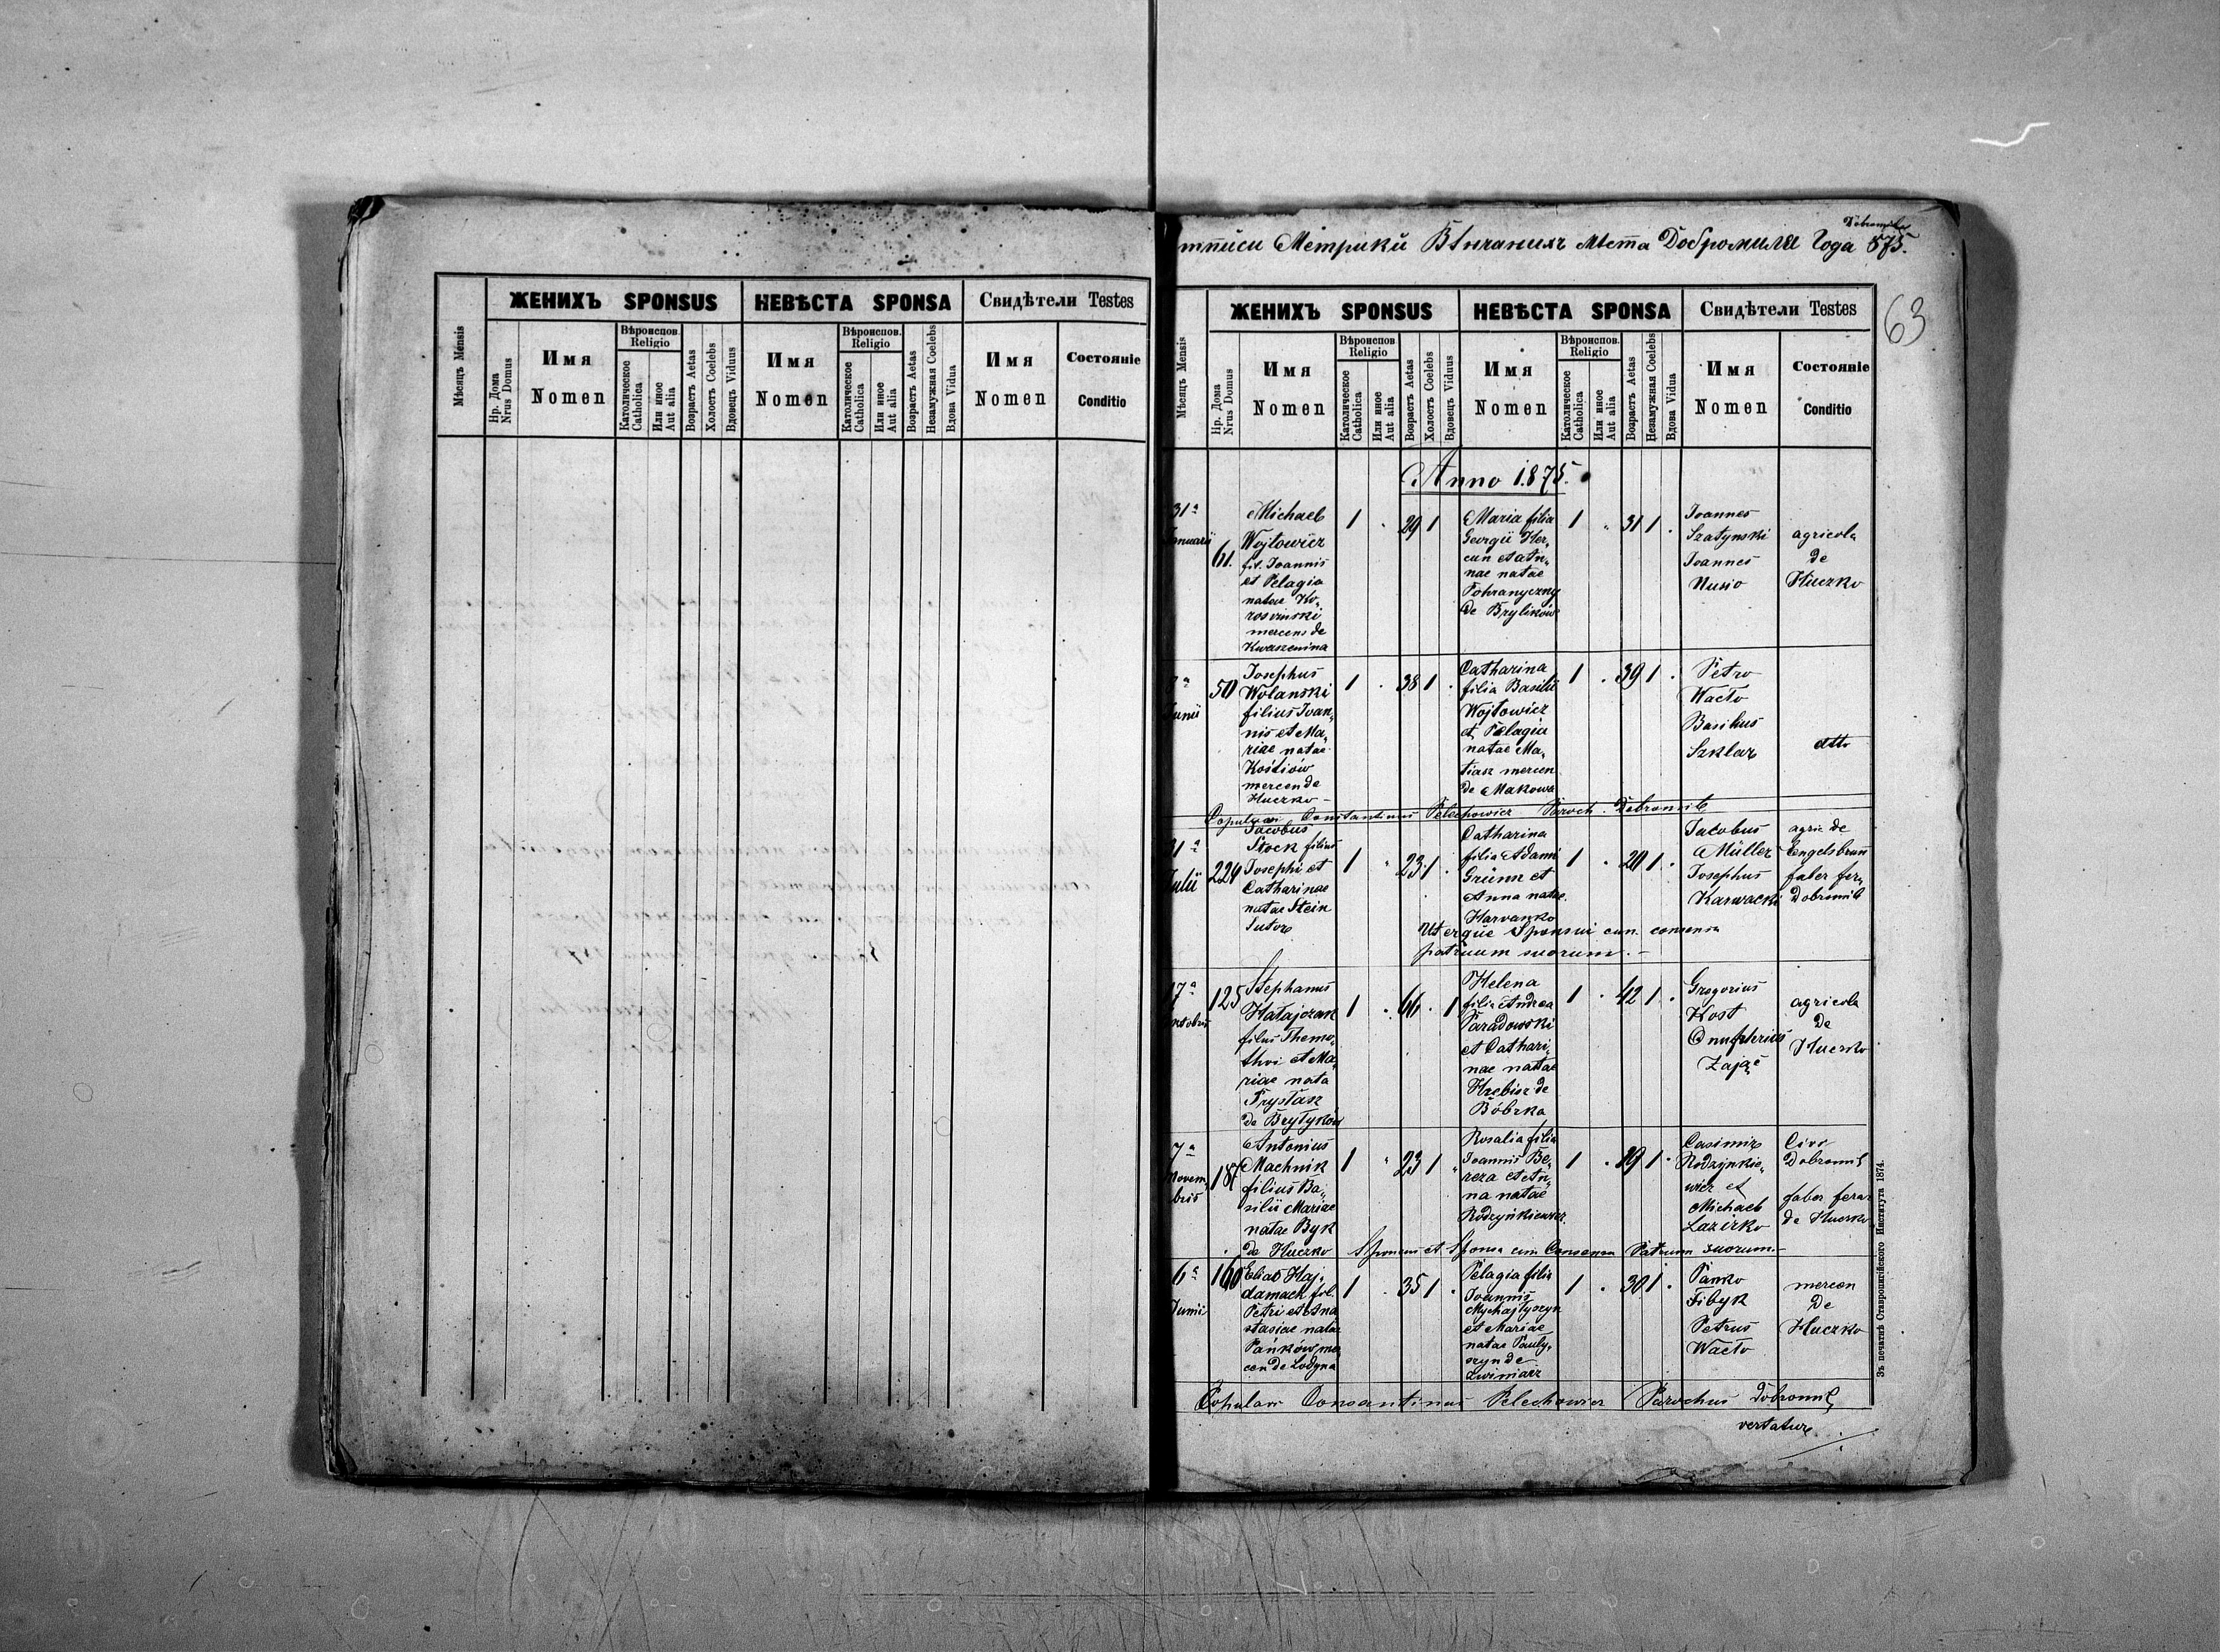 ЖЕНИХЪ SPONSUS НЕВѢСТА SPONSA Свидѣтели Testes
Мѣсяцъ Mensis
Нр. Дома Nrus Domus
Имя Nomen
Вѣроиспов. Religio
Католическое Catholica
Или иное Aut alia
Возрастъ Aetas
Холостъ Coelebs
Вдовецъ Viduus
Имя Nomen
Вѣроиспов. Religio
Католическое Catholica
Или иное Aut alia
Возрастъ Aetas
Незамужная Coelebs
Вдова Vidua
Имя Nomen
Состояніе Conditio
Dobromil
тписи Метрики Вѣнчаныхъ мѣста Добромиля Года 875.
63
ЖЕНИХЪ SPONSUS НЕВѢСТА SPONSA Свидѣтели Testes
Мѣсяцъ Mensis
Нр. Дома Nrus Domus
Имя Nomen
Вѣроиспов. Religio
Католическое Catholica
Или иное Aut alia
Возрастъ Aetas
Холостъ Coelebs
Вдовецъ Viduus
Имя Nomen
Вѣроиспов. Religio
Католическое Catholica
Или иное Aut alia
Возрастъ Aetas
Незамужная Coelebs
Вдова Vidua
Имя Nomen
Состояніе Conditio
Anno 1875.
31a
Januarii
61.
Michael
Wojtowicz
fil. Joannis
et Pelagia
natae Ko„
rosvinski
mercens de
Kwaszenina
1 . 29 1
Maria filia
Georgii Her„
cun et An„
nae natae
Pohranyczny
de Brylików
1 " 31 1 .
Joannes
Szatynski
Joannes
Nusio
agricola
de
Huczko
8a
Junii
50
Josephus
Wolanski
filius Joan„
nis et Ma„
riae natae
Kośtiów
mercen de
Huczko –
1 . 38 1 .
Catharina
filia Basilii
Wojtowicz
et Pelagia
natae Ma„
tiasz mercen
de Makowa
1 . 39 1 .
Petro
Wacło
Basilius
Szklarz
dtto
Copulavi Constantinus Pelechowicz Paroch. Dobromil
31a
Julii
224
Jacobus
Stock filius
Josephi et
Catharinae
natae Stein
Sutor
1 " 23 1 .
Catharina
filia Adami
Grünn et
Anna natae
Harvanko
1 . 20 1 .
Jacobus
Müller
Josephus
Karwacki
agric de
Engelsbrun
faber fer„
Dobromil
Uterque Sponsui cum consensu
patruum suorum. –
17a
125
Stephanus
Hałajczak
filus Themo„
thei et Ma„
riae nata
Prystasz
de Bryłyków
1 . 46 . 1
Helena
filia Andrea
Paradowski
et Cathari„
nae natae
Hrebisz de
Bóbrka
1 . 42 1 .
Gregorius
Kost
Onuphrius
Zając
agricola
de
Huczko
7a
Novem„
bris
187
Antonius
Machnik
filius Ba„
silii Mariae
natae Byk
de Huczko
1 " 23 1
Rosalia filia
Joannis Be„
reza et An„
na natae
Rodzynkiewicz
1 . 19 1 .
Casimir
Rodzynkie„
wicz et
Michael
Lazirko
Civs
Dobromil
faber ferar
de Huczko
Sponsus et Sponsa cum Consensu Patrum suorum. –
6a
Junii
160
Elias Haj„
damach fil.
Petri et Ana
stasiae natae
Pańków mer
cen de Lodyna
1 . 35 1 .
Pelagia filia
Joannis
Mychajłyszyn
et Mariae
natae Pauly„
szyn de
Liwniarz
1 . 30 1 .
Panko
Fibyk
Petrus
Wacło
mercen
de
Huczko
Copulavi Constantinus Pelechowicz Parochus Dobromil
vertatur
Зъ печатнѣ Ставропигійского Института 1874.